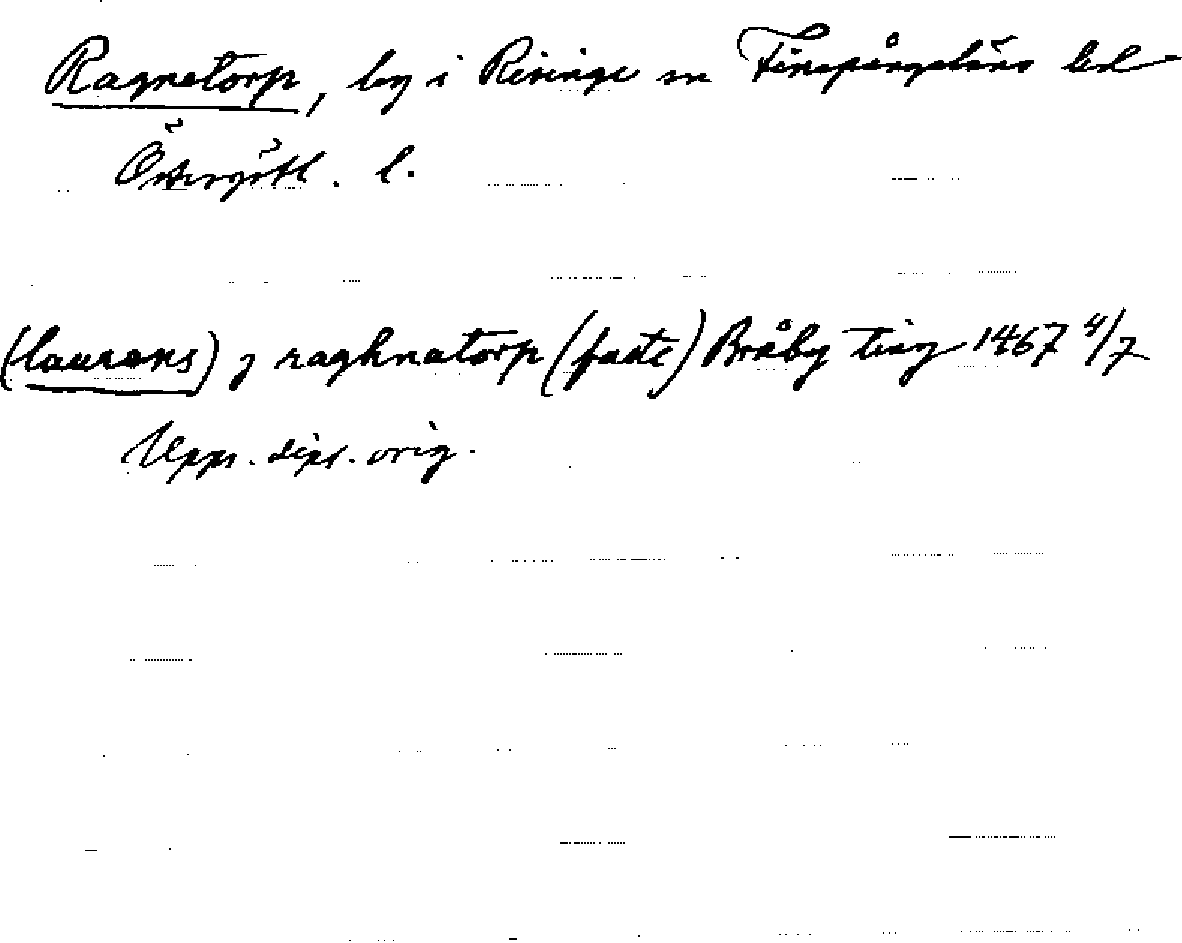 Ragnetorp, by i Risinge sn Finspångaläns hd
Östergötl. l.
(laurens) j raghnatorp (faste) Bråby ting 1467 4/7
Upps. dipl. orig.